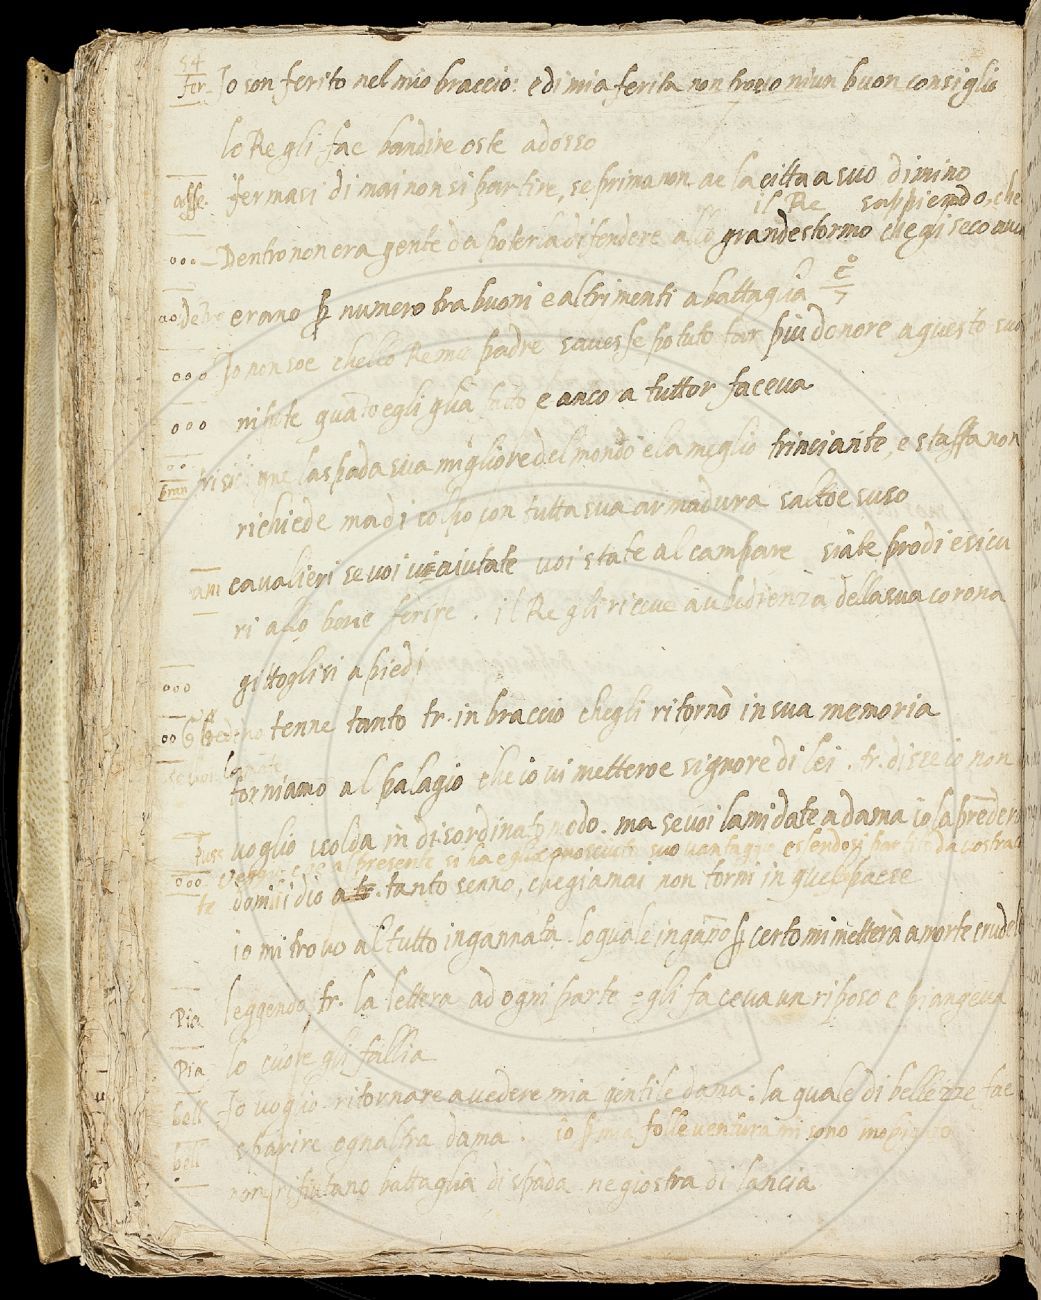 54
fer Io son ferito nel mio braccio: e di mia ferita non truovo niun buon consiglio
lo Re gli fae bandire oste adosso
asse fermasi di mai non si partire, se prima non ae la citta a suo dimino
il Re sappiendo, che
ooo Dentro non era gente da poterla difendere allo grande stormo che gli seco
erano ꝑ numero tra buoni e altrimenti a battaglia
ooo Io non soe chello Re mio padre savesse potuto far piu donore a questo suo
ooo nipote quanto egli gia e ancora tuttor faceva
bran la spada sua migliore del mondo e la meglio trinciante, e staffa non
richiede ma di colpo con tutta sua armadura saltoe suso
am cavalieri se voi v'aiutate voi siate al campare siate prodi e sicu
ri allo bene ferire. il Re gli riceve a ubidienza della sua corona
ooo gittoglisi a piedi
oo tenne tanto tr. in braccio chegli ritornò in sua memoria
torniamo al palagio che io vi metteroe signore di lei. tr. disse io non
voglio isolda in disordinato modo. ma se voi la mi date a dama io la prēdero
al presente si ha suo vantaggio essendosi partito da vostra
ooo domiiidio a tr. tanto senno, che giamai non torni in quel paese
io mi trovo al tutto ingannata. lo quale inganno ꝑ certo mi metterà a morte crudele
Pia leggendo tr. la lettera ad ogni parte egli faceva un riposo e piangeva
Pia lo cuore gli fallia
bell Io voglio ritornare a vedere mia gentile dama: la quale di bellezze fae
bell sparire ognaltra dama. io ꝑ mia folle ventura mi sono
non rifiutano battaglia di spada ne giostra di lancia